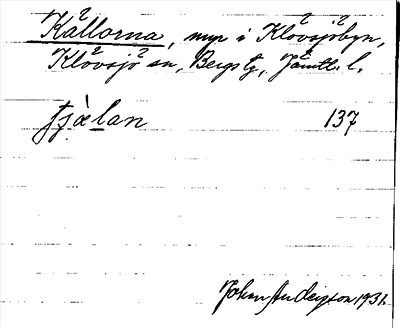 Källorna, myr i Klövsjöbyn,
Klövsjö sn, Bergs tg, Jämtl. l.
tjæ̀lan 137
Johan Andersson 1931.